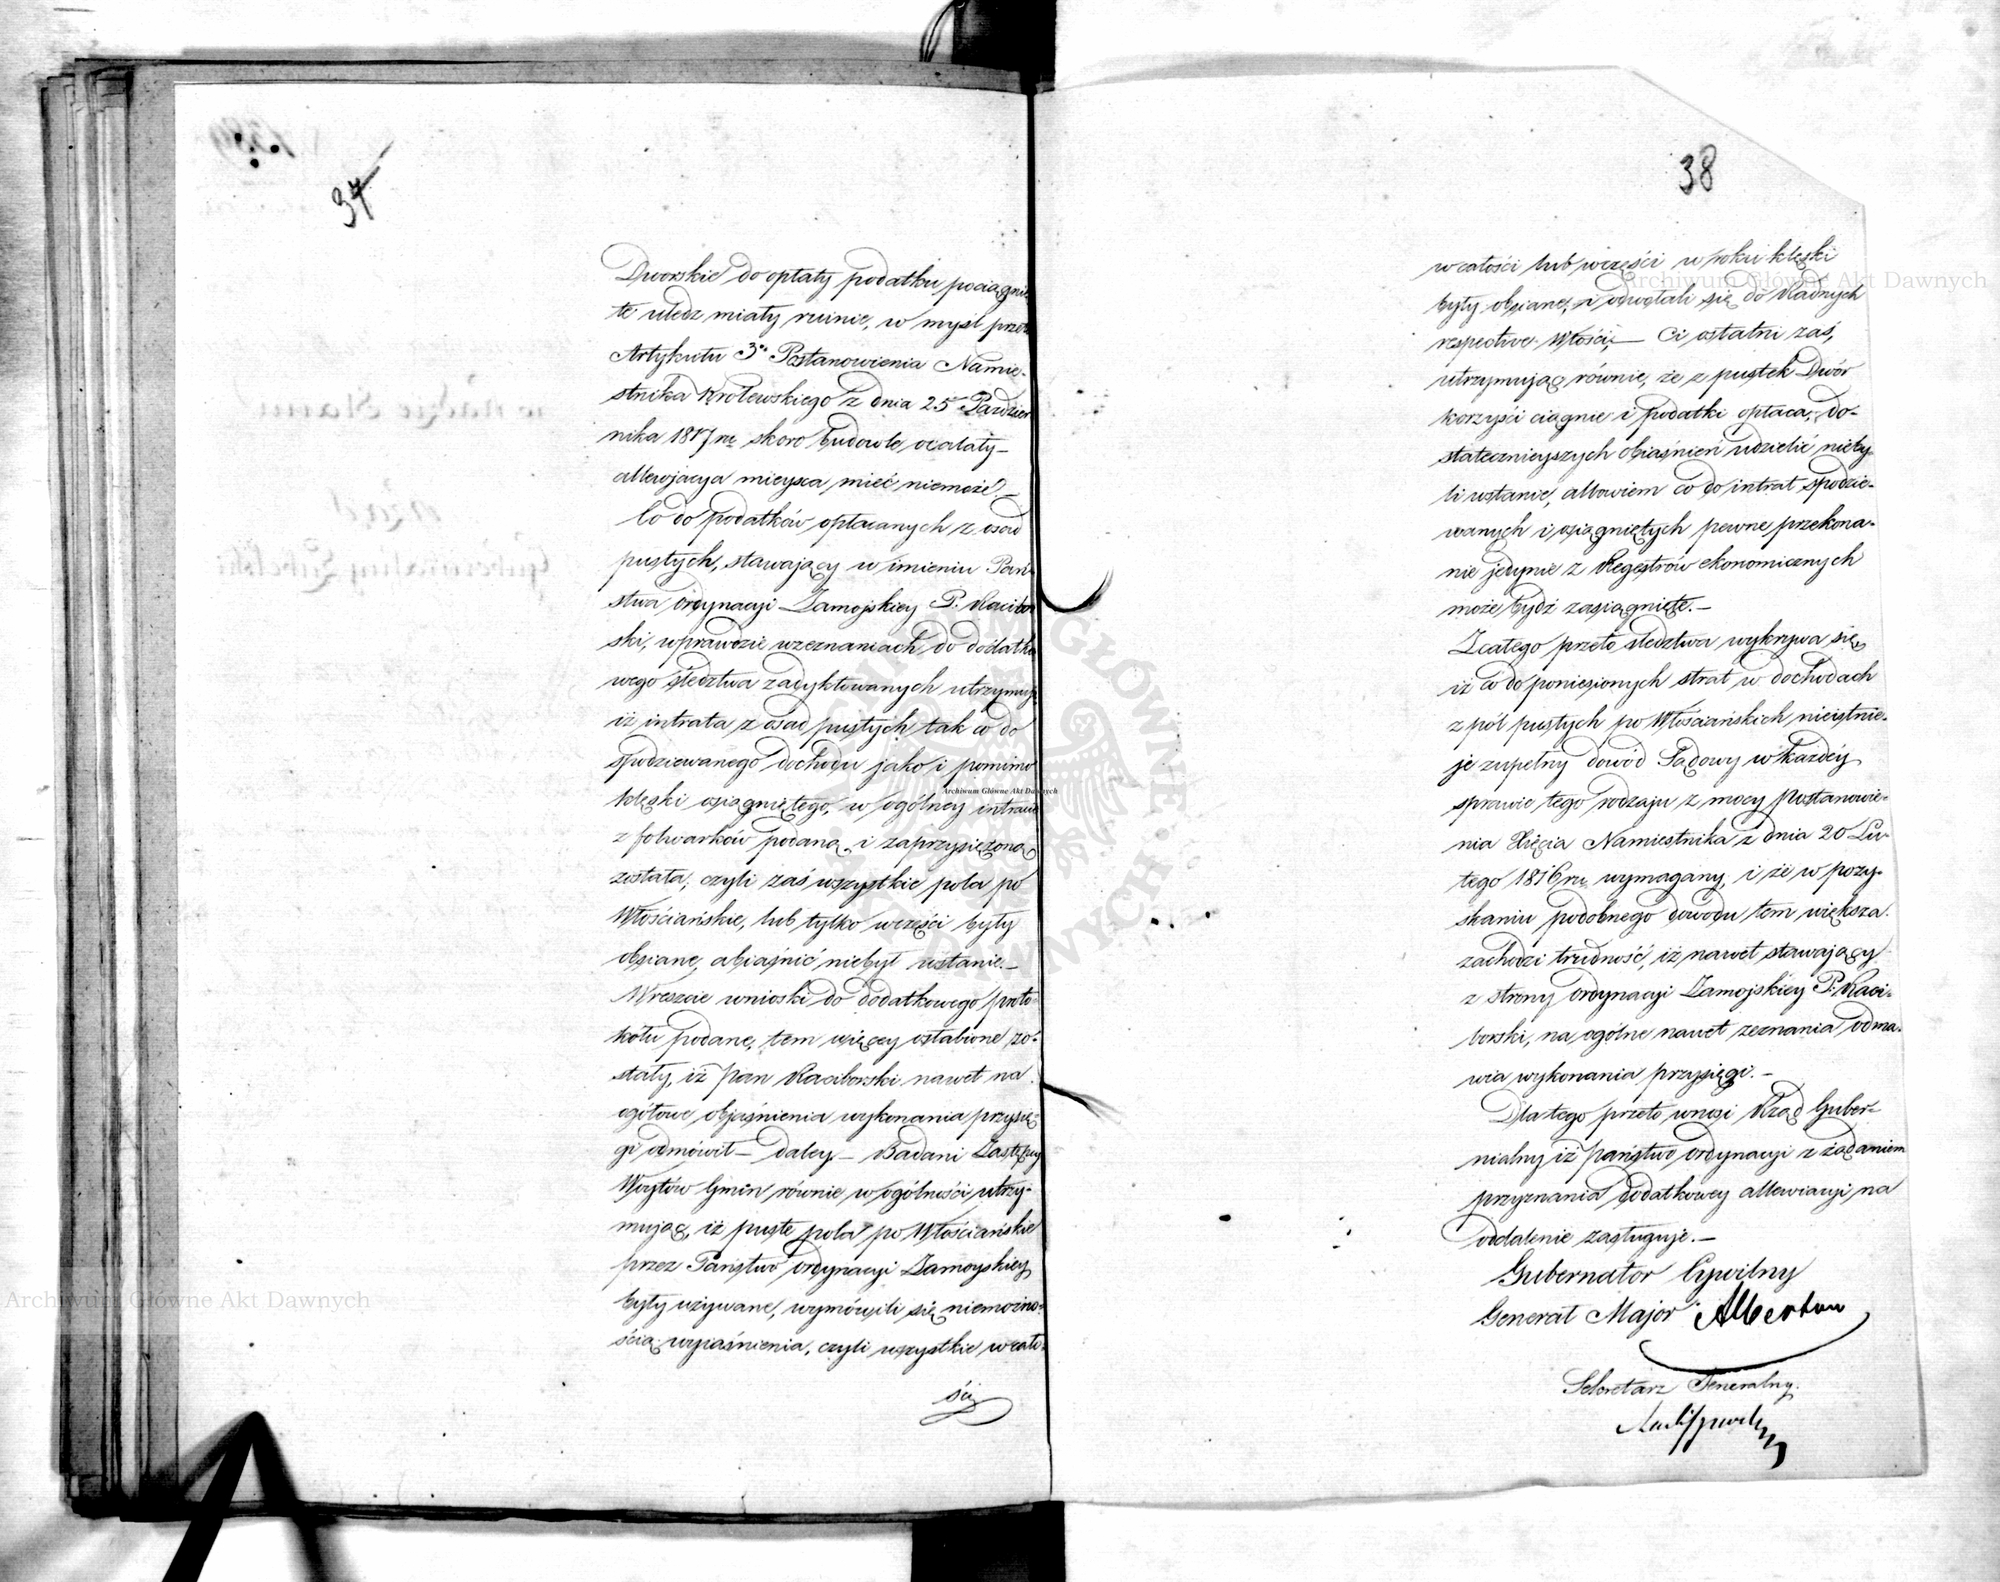 37
Dworskie do opłaty podatku pociągnię
te uledz miały ruinie, w myśl prze
Artykułu 3º Postanowienia Namie-
stnika Królewskiego z dnia 25 Paździer
nika 1817 ru skoro budowle ocalały –
allewjacya mieysca mieć niemoże. –
Co do podatków opłacanych z osad
pustych, stawający w imieniu Pań-
stwa Ordynacyi Zamojskiey P. Racibor
ski, wprawdzie wzeznaniach do dodatko
wego śledztwa zadyktowanych utrzymuje
iż intrata z osad pustych tak co do
spodziewanego dochodu jako i pomimo
klęski osiągniętego, w ogólney intracie
z folwarków podaną i zaprzysiężoną
została; czyli zaś wszystkie pola po
Włościańskie, lub tylko wczęści były
obsiane, obiaśnić niebył wstanie. –
Wreszcie wnioski do dodatkowego proto-
kółu podane, tem więcey osłabione zo-
stały, iż Pan Raciborski nawet na
ogółowe objaśnienia wykonania przysię-
gi odmówił – daley – Badani Zastępcy
Woytów Gmin równie w ogólności utrzy-
mując, iż puste pola po Włościańskie
przez Państwo Ordynacyi Zamoyskiey
były używane, wymówili się niemożno-
ścią wyiaśnienia, czyli wszystkie wcało-
ści
38
w całości lub wczęści w roku klęski
były obsiane, i odwołali się do Radnych
respective Włości; – Ci ostatni zaś,
utrzymując równie, że z pustek Dwór
korzyści ciągnie i podatki opłaca, do-
statecznieyszych obiaśnień udzielić nieby-
li wstanie, albowiem co do intrat spodzie-
wanych i osiągniętych pewne przekona-
nie jedynie z Regestrów ekonomicznych
może bydź zasiągnięte. –
Zcałego przeto śledztwa wykrywa się
iż co do poniesionych strat w dochodach
z pól pustych po Włościańskich nieistnie-
je zupełny dowód Sądowy w każdey
sprawie tego rodzaju z mocy Postanowie-
nia Xięcia Namiestnika z dnia 20 Lu-
tego 1816 ru wymagany, i że w pozy-
skaniu podobnego dowodu tem większa
zachodzi trudność, iż nawet stawający
z strony Ordynacyi Zamojskiey P. Raci-
borski, na ogólne nawet zeznania odma-
wia wykonania przysięgi. –
Dlatego przeto wnosi Rząd Guber-
nialny iż państwo Ordynacyi z żądaniem
przyznania dodatkowey allewiacyi na
oddalenie zasługuje. –
Gubernator Cywilny
Generał Major Albertow
Sekretarz Generalny.
Archiwum Główne Akt Dawnych
Archiwum Główne Akt Dawnych
Archiwum Główne Akt Dawnych